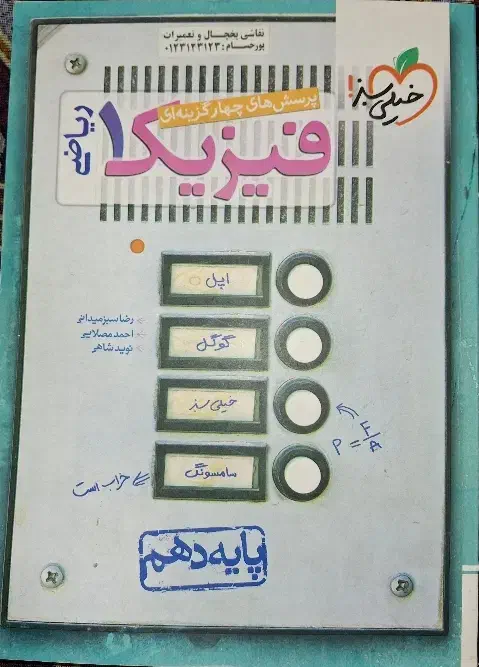 نقاشی یخچال و تعمیرات
پورحسام: ۰۱۲۳۱۲۳۱۲۳
خیلی سبز!
پرسش‌های چهارگزینه‌ای
فیزیک ۱
ریاضی
اپل
گوگل
خیلی سبز
سامسونگ
رضا سبزمیدانی
احمد مصلایی
نوید شاهی
P = F/A
خراب است
پایه دهم